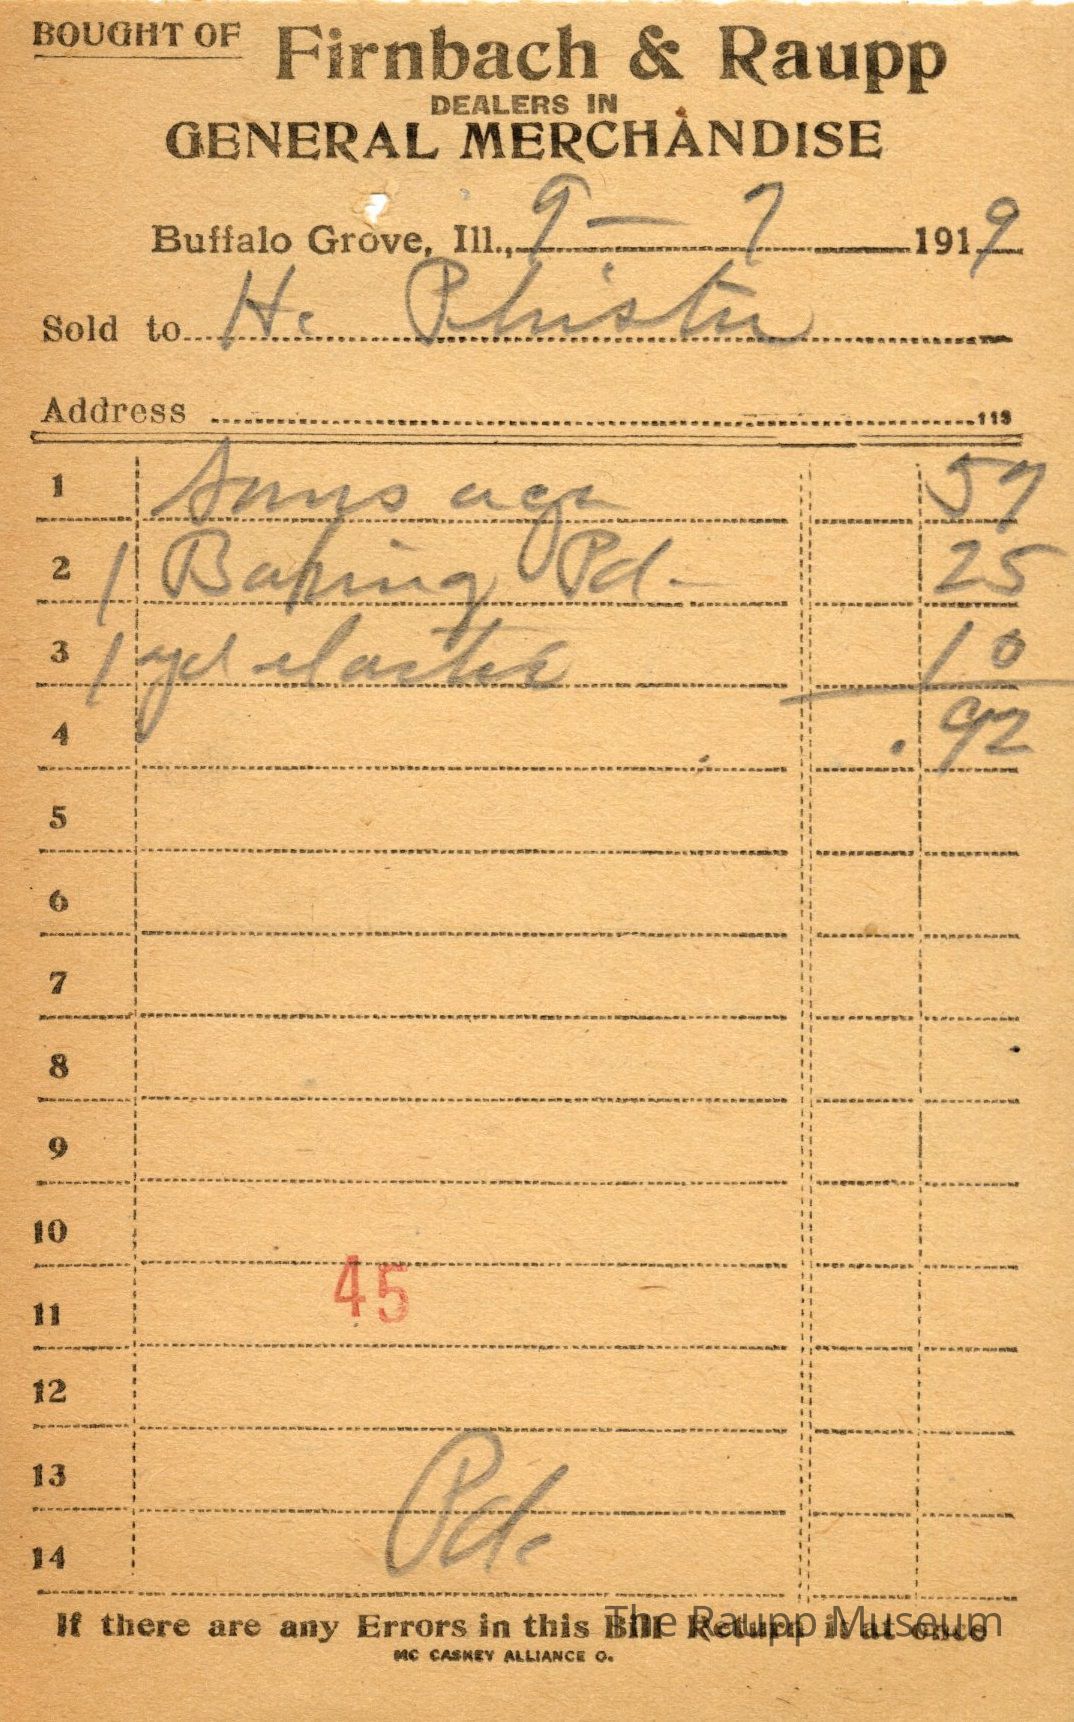 BOUGHT OF Firnbach & Raupp
DEALERS IN
GENERAL MERCHANDISE
Buffalo Grove, Ill., 9 — 7 1919
Sold to H. Phister
Address 113
1 Sausage 57
2 1 Baking Pd. 25
3 1 yd elastic 10
4 . 92
5
6
7
8
9
10
45
11
12
13
Pd.
14
If there are any Errors in this Bill Return it at once
The Raupp Museum
MC CASKEY ALLIANCE O.